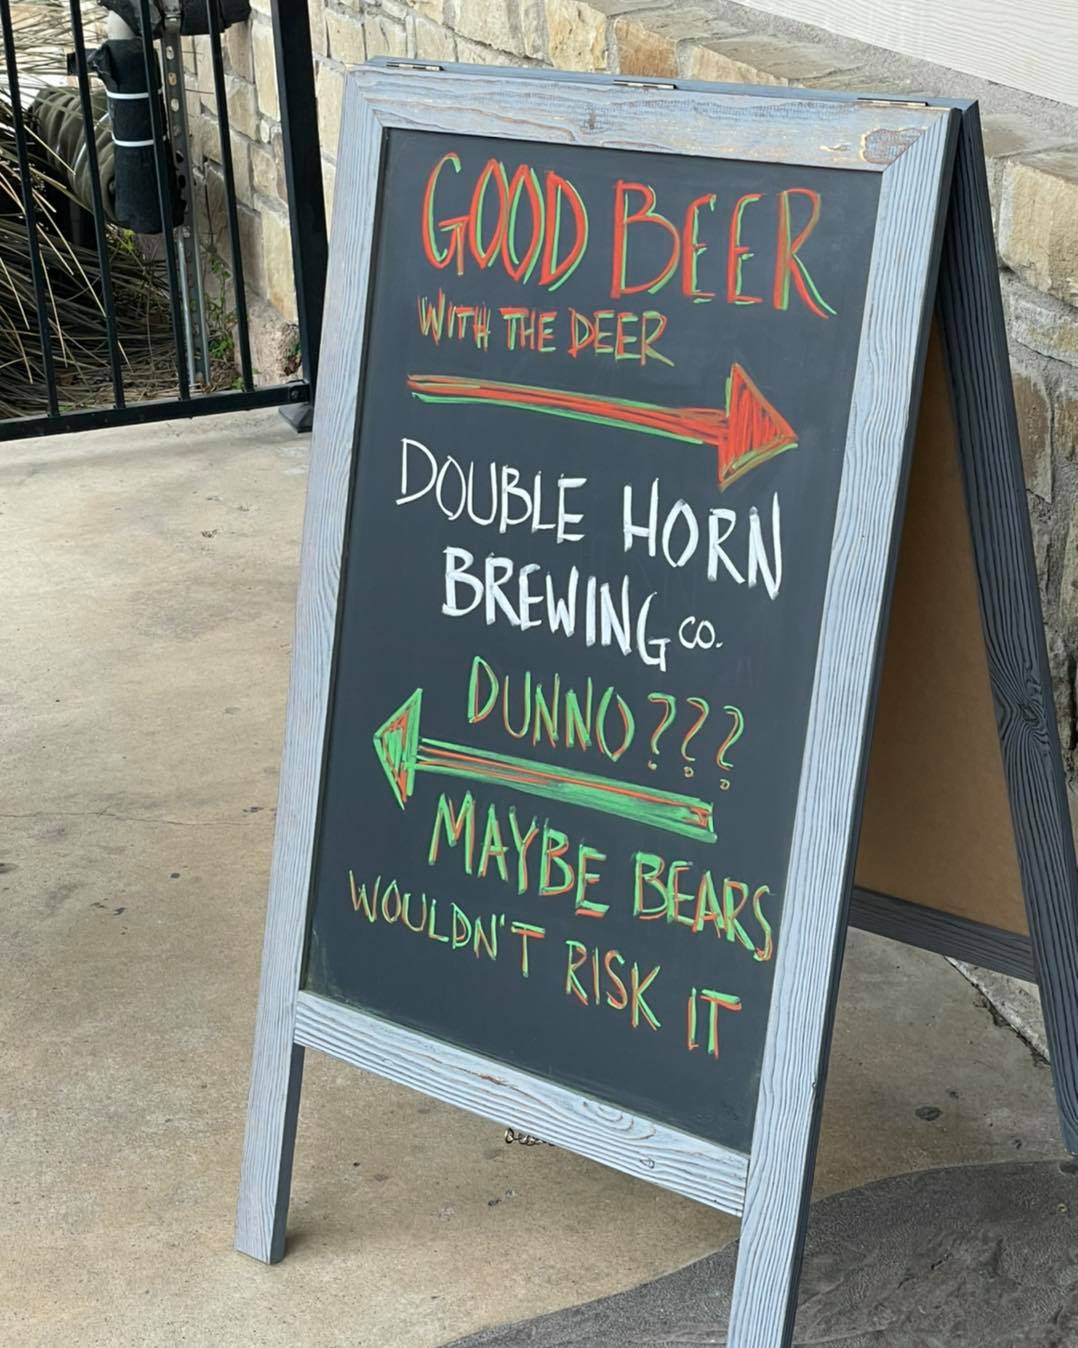 GOOD BEER
WITH THE DEER
DOUBLE HORN
BREWING CO.
DUNNO???
MAYBE BEARS
WOULDN'T RISK IT